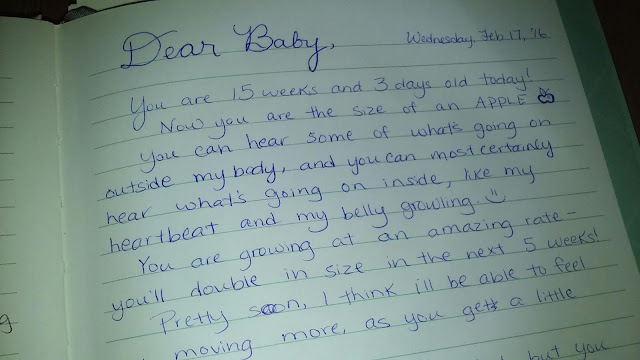 Wednesday, Feb 17, '16
Dear Baby,
You are 15 weeks and 3 days old today!
Now you are the size of an APPLE
You can hear some of what's going on
outside my body, and you can most certainly
hear what's going on inside, like my
heartbeat and my belly growling.
You are growing at an amazing rate -
you'll double in size in the next 5 weeks!
Pretty soon, I think i'll be able to feel
moving more, as you get a little
but you
g